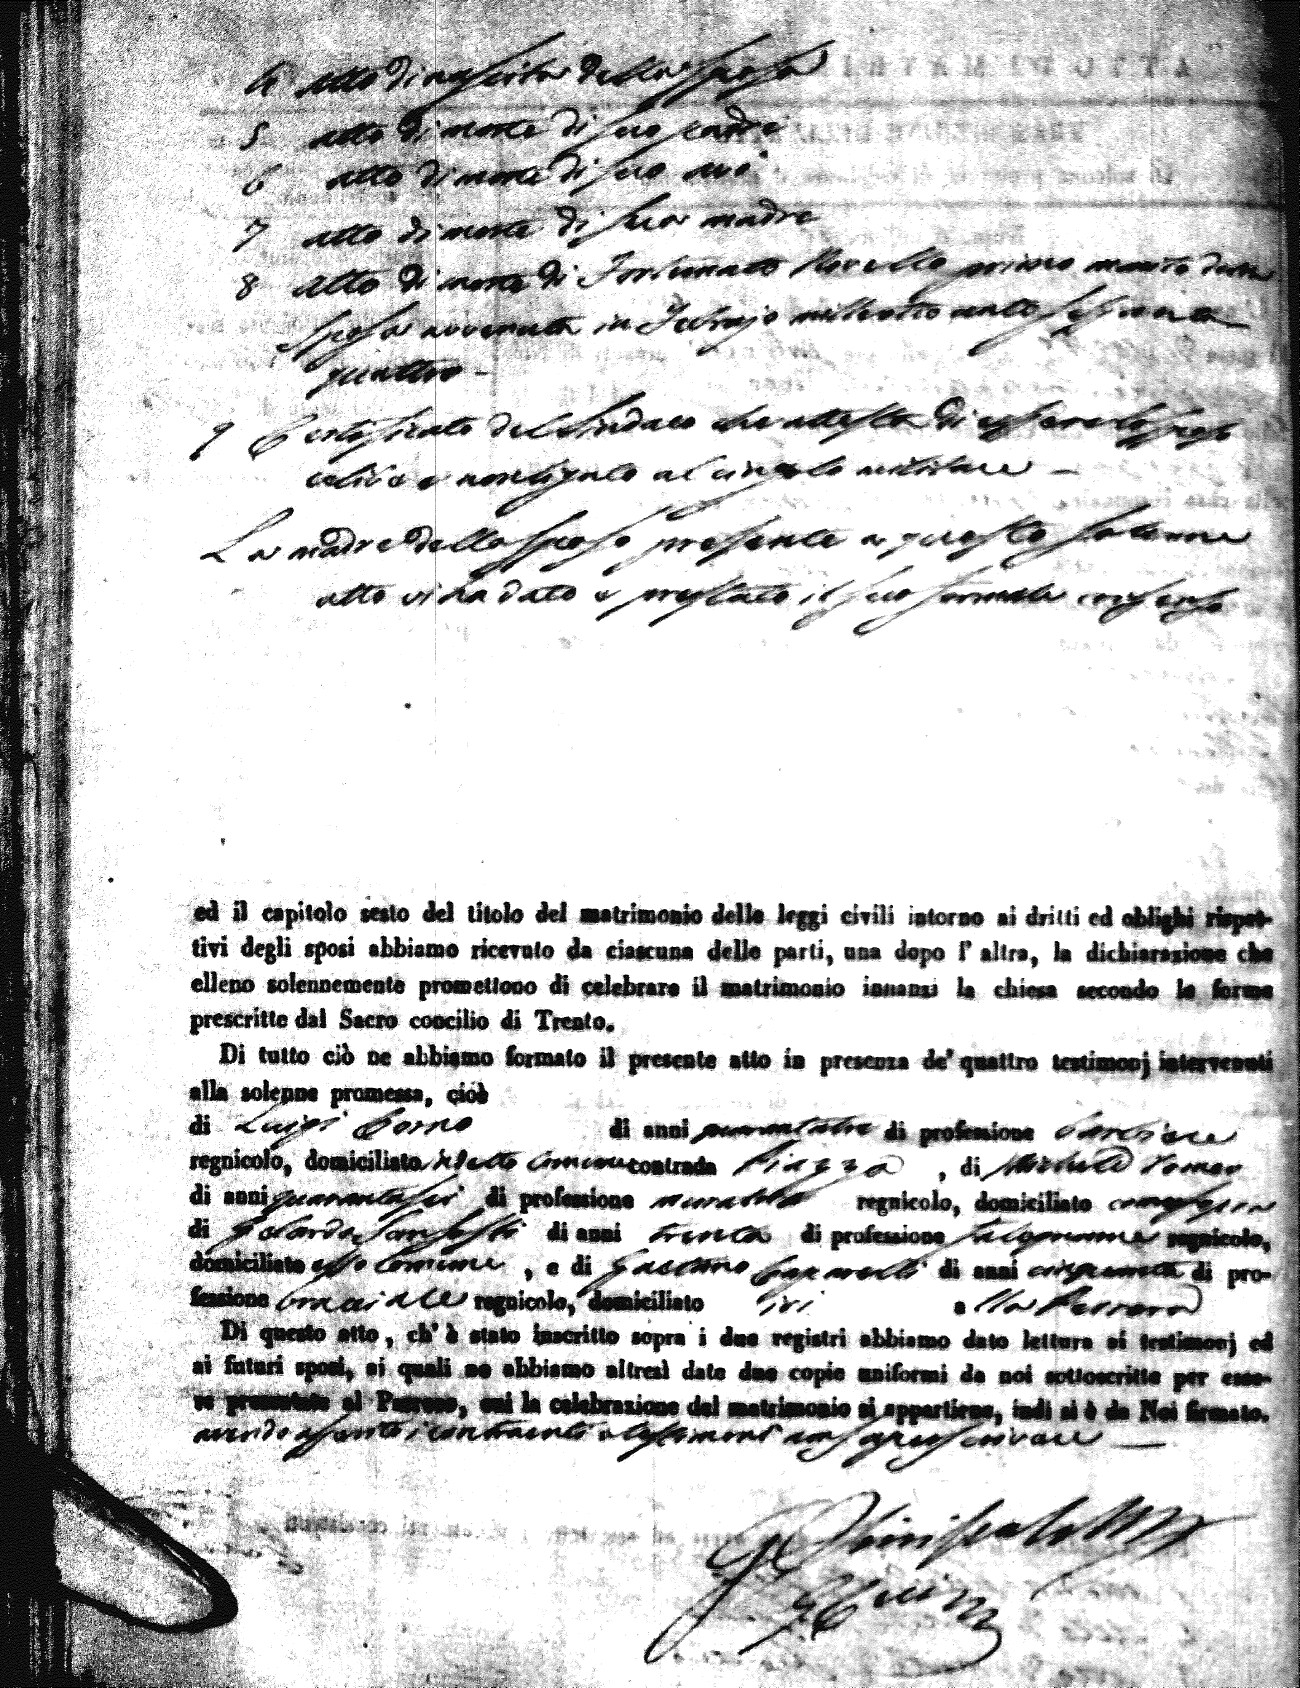 4 atto di nascita della sposa
5 atto di morte di suo padre
6 atto di morte di suo avo
7 atto di morte di sua madre
8 atto di morte di Fortunato primo marito della
sposa avvenuta in Febrajo milleotto cento sessanta
quattro -
9 Certificato del Sindaco che attesta di essere lo sposo
celibe e non ligato al cingolo militare -
La madre dello sposo presente a questo solenne
atto vi ha dato e prestato il suo formale consenso
ed il capitolo sesto del titolo del matrimonio delle leggi civili intorno ai dritti ed oblighi rispet-
tivi degli sposi abbiamo ricevuto da ciascuna delle parti, una dopo l' altra, la dichiarazione che
elleno solennemente promettono di celebrare il matrimonio innanzi la chiesa secondo le forme
prescritte dal Sacro concilio di Trento.
Di tutto ciò ne abbiamo formato il presente atto in presenza de' quattro testimonj intervenuti
alla solenne promessa, cioè
di Luigi di anni di professione barbiere
regnicolo, domiciliato in detto Comune contrada Piazza , di Michele
di anni quarantasei di professione regnicolo, domiciliato
di di anni trenta di professione falegname regnicolo,
domiciliato esso Comune , e di Gaetano di anni cinquanta di pro-
fessione bracciale regnicolo, domiciliato ivi alla
Di questo atto, ch' è stato inscritto sopra i due registri abbiamo dato lettura ai testimonj ed
ai futuri sposi, ai quali ne abbiamo altresì date due copie uniformi da noi sottoscritte per esse-
re presentate al Parroco, cui la celebrazione del matrimonio si appartiene, indi si è da Noi firmato.
avendo asserito i contraenti e testimoni non saper scrivere —